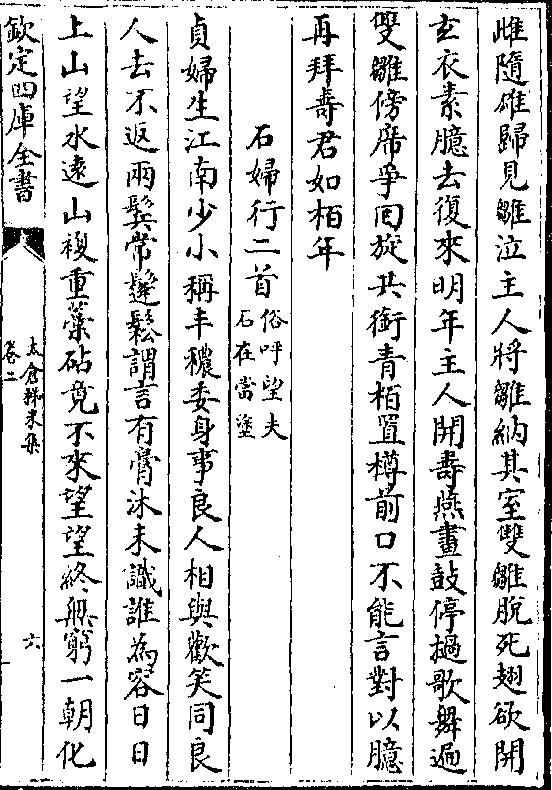 雌隨雄歸見雛泣主人將雛納其室雙雛脫死翅欲開
玄衣素臆去復來明年主人開壽燕畫鼓停撾歌舞遍
雙雛傍席爭回旋共銜青栢置樽前口不能言對以臆
再拜壽君如栢年
石婦行二首俗呼望夫石在當塗
貞婦生江南少小稱丰穠委身事良人相與歡笑同良
人去不返兩鬂常鬔鬆謂言有膏沐未識誰為容日日
上山望水遠山複重藁砧竟不來望望終無窮一朝化
欽定四庫全書
太倉稊米集
卷二
六